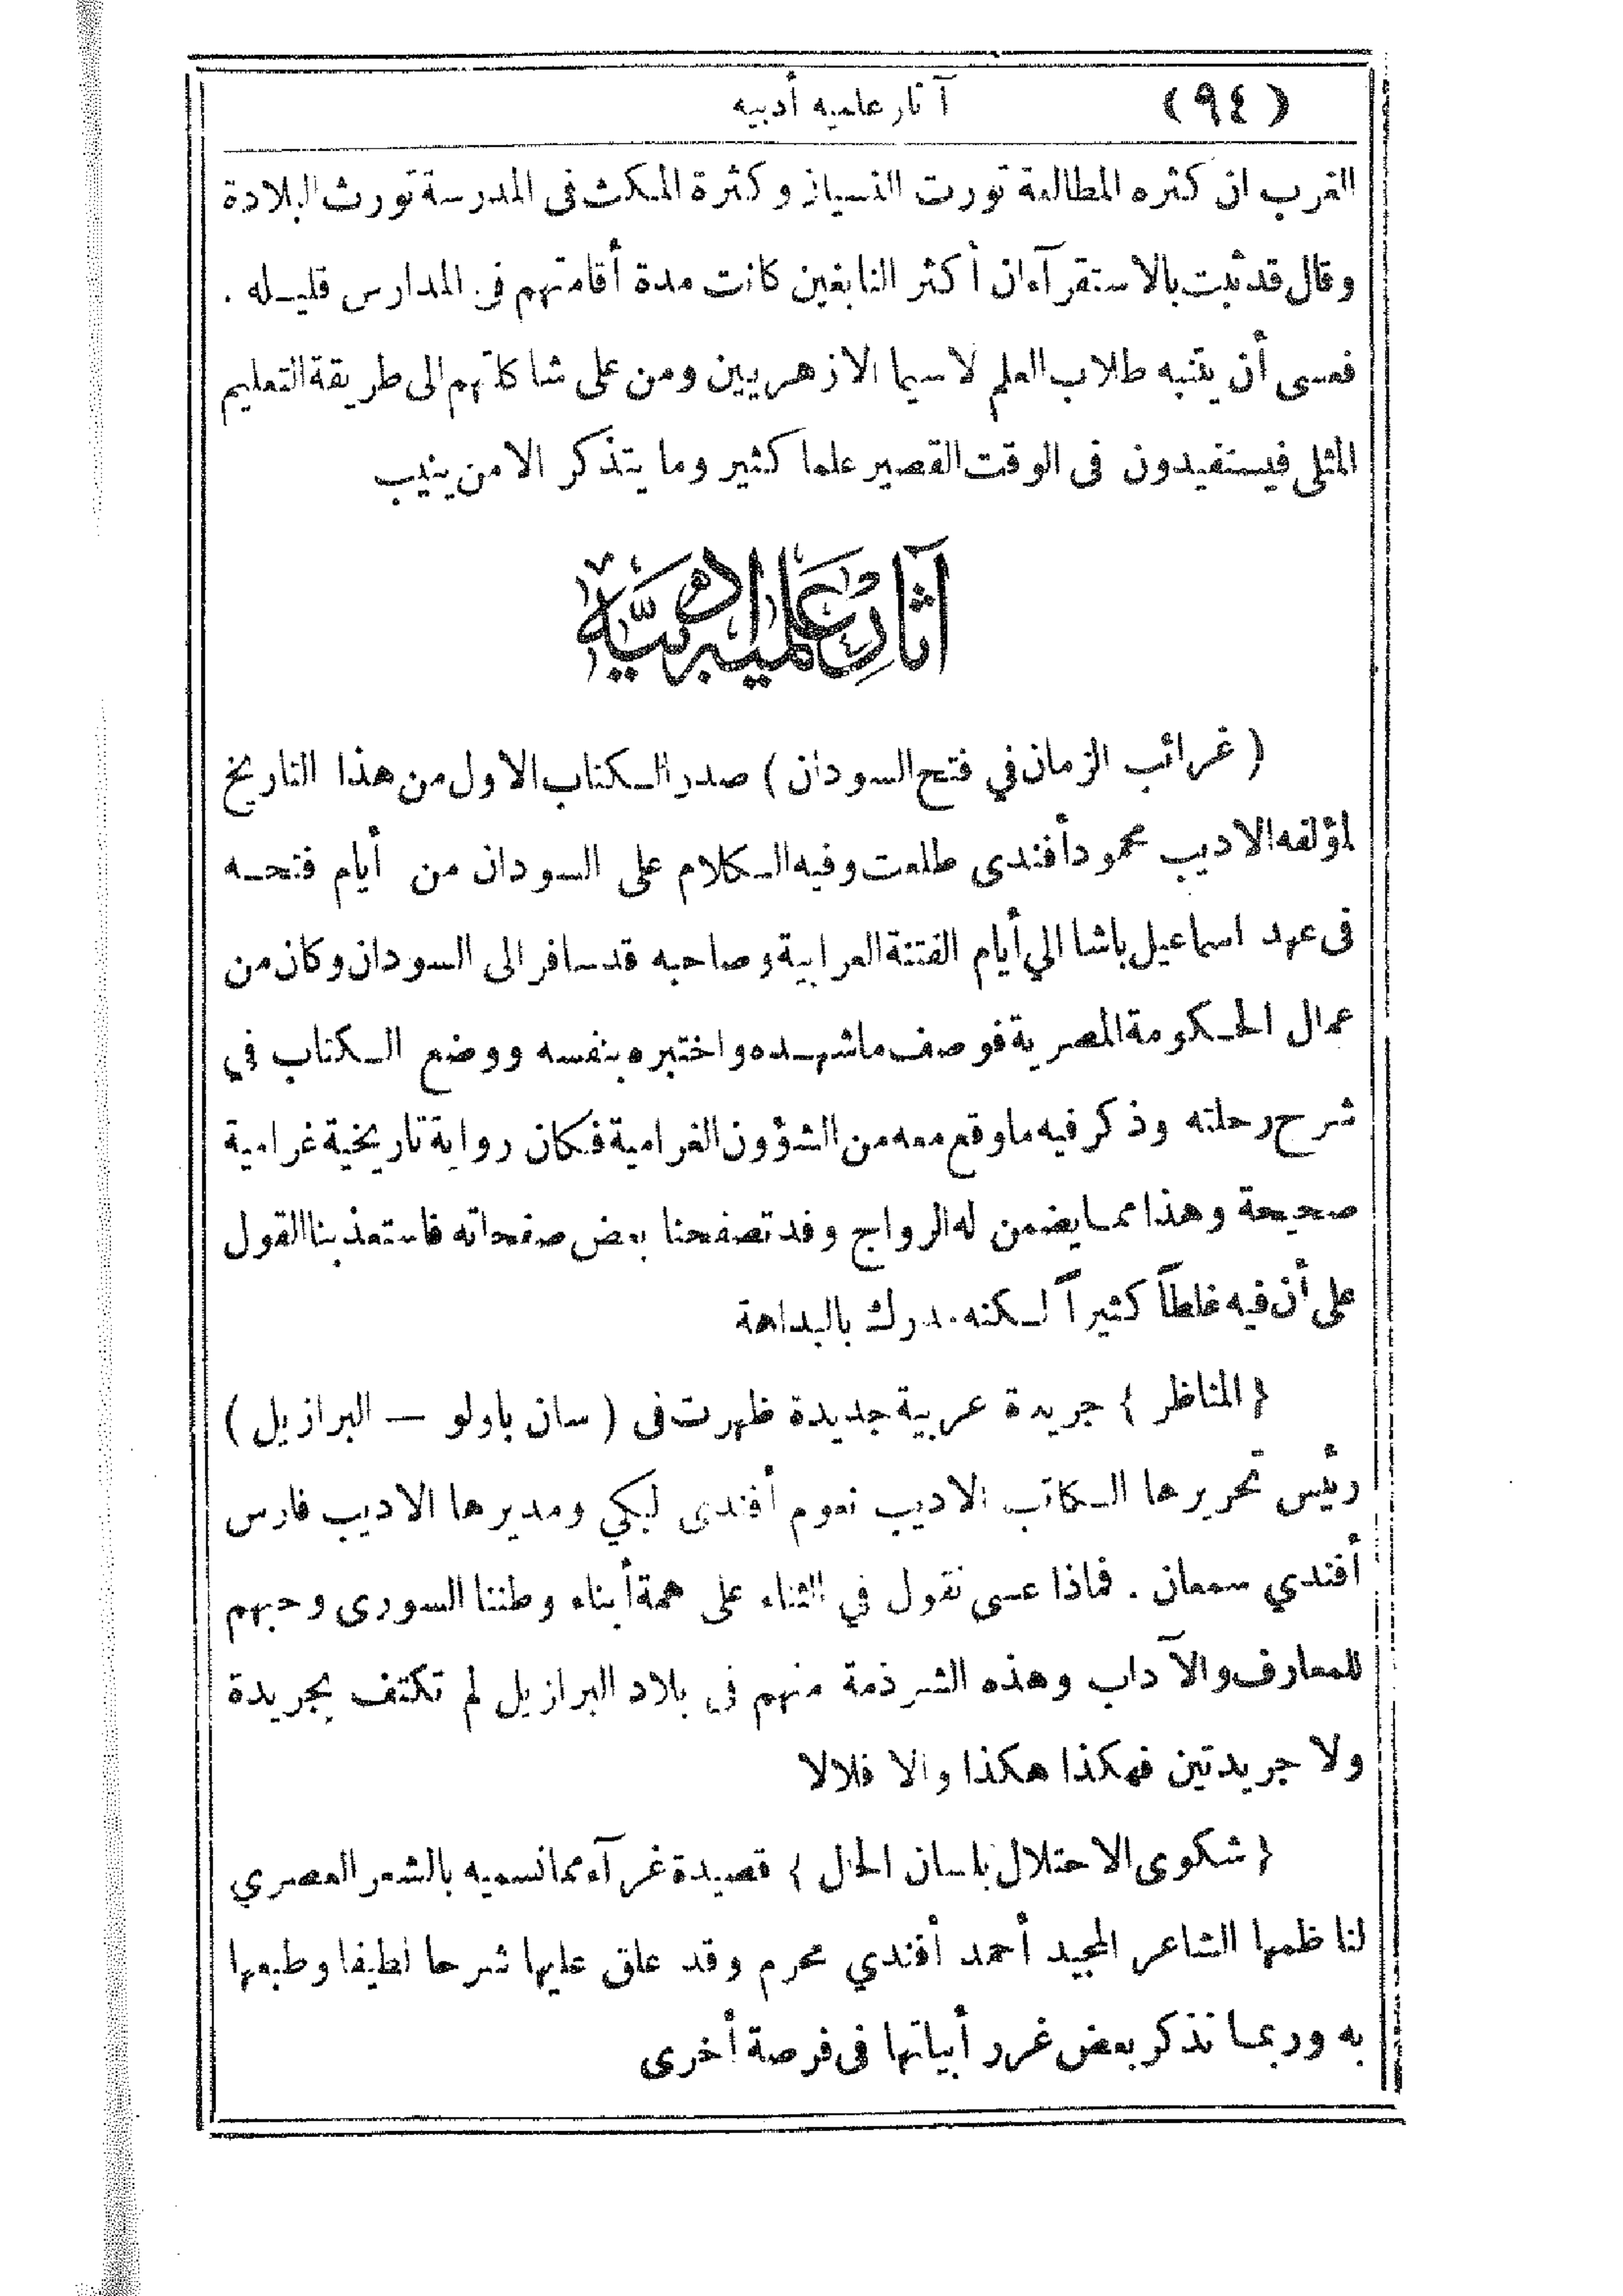 (٩٤) آثار علميه أدبيه
الغرب ان كثره المطالعة تورت النسيان وكثرة المكث فى المدرسة تورث البلادة
وقال قد ثبت بالاستقرآء ان أكثر النابغين كانت مدة أقامتهم فى المدارس قليله .
فعسى أن يتنبه طلاب العلم لا سيما الازهريين ومن على شاكلتهم الى طريقة التعليم
المثلى فيستفيدون فى الوقت القصير علما كثير وما يتذكر الا من ينيب
آثار علمية أدبية
( غرائب الزمان في فتح السودان ) صدر الكتاب الاول من هذا التاريخ
لمؤلفه الاديب محمود أفندى طلعت وفيه الكلام على السودان من أيام فتحه
فى عهد اسماعيل باشا الي أيام الفتنة العرابية وصاحبه قد سافر الى السودان وكان من
عمال الحكومة المصرية فوصف ما شهده واختبره بنفسه ووضع الكتاب في
شرح رحلته وذكر فيه ما وقع معه من الشؤون الغرامية فكان رواية تاريخية غرامية
صحيحة وهذا مما يضمن له الرواج وقد تصفحنا بعض صفحاته فاستعذبنا القول
على أن فيه غلطاً كثيراً لكنه مدرك بالبداهة
{ المناظر } جريدة عربية جديدة ظهرت فى ( سان باولو — البرازيل )
رئيس تحريرها الكاتب الاديب نعوم أفندى لبكي ومديرها الاديب فارس
أفندي سمعان . فماذا عسى نقول في الثناء على همة أبناء وطننا السورى وحبهم
للمعارف والآداب وهذه الشرذمة منهم فى بلاد البرازيل لم تكتف بجريدة
ولا جريدتين فهكذا هكذا والا فلالا
{ شكوى الاحتلال بلسان الحال } قصيدة غرآء مما نسميه بالشعر العصري
لناظمها الشاعر المجيد أحمد أفندي محرم وقد علق عليها شرحا لطيفا وطبعها
به وربما نذكر بعض غرر أبياتها فى فرصة أخرى